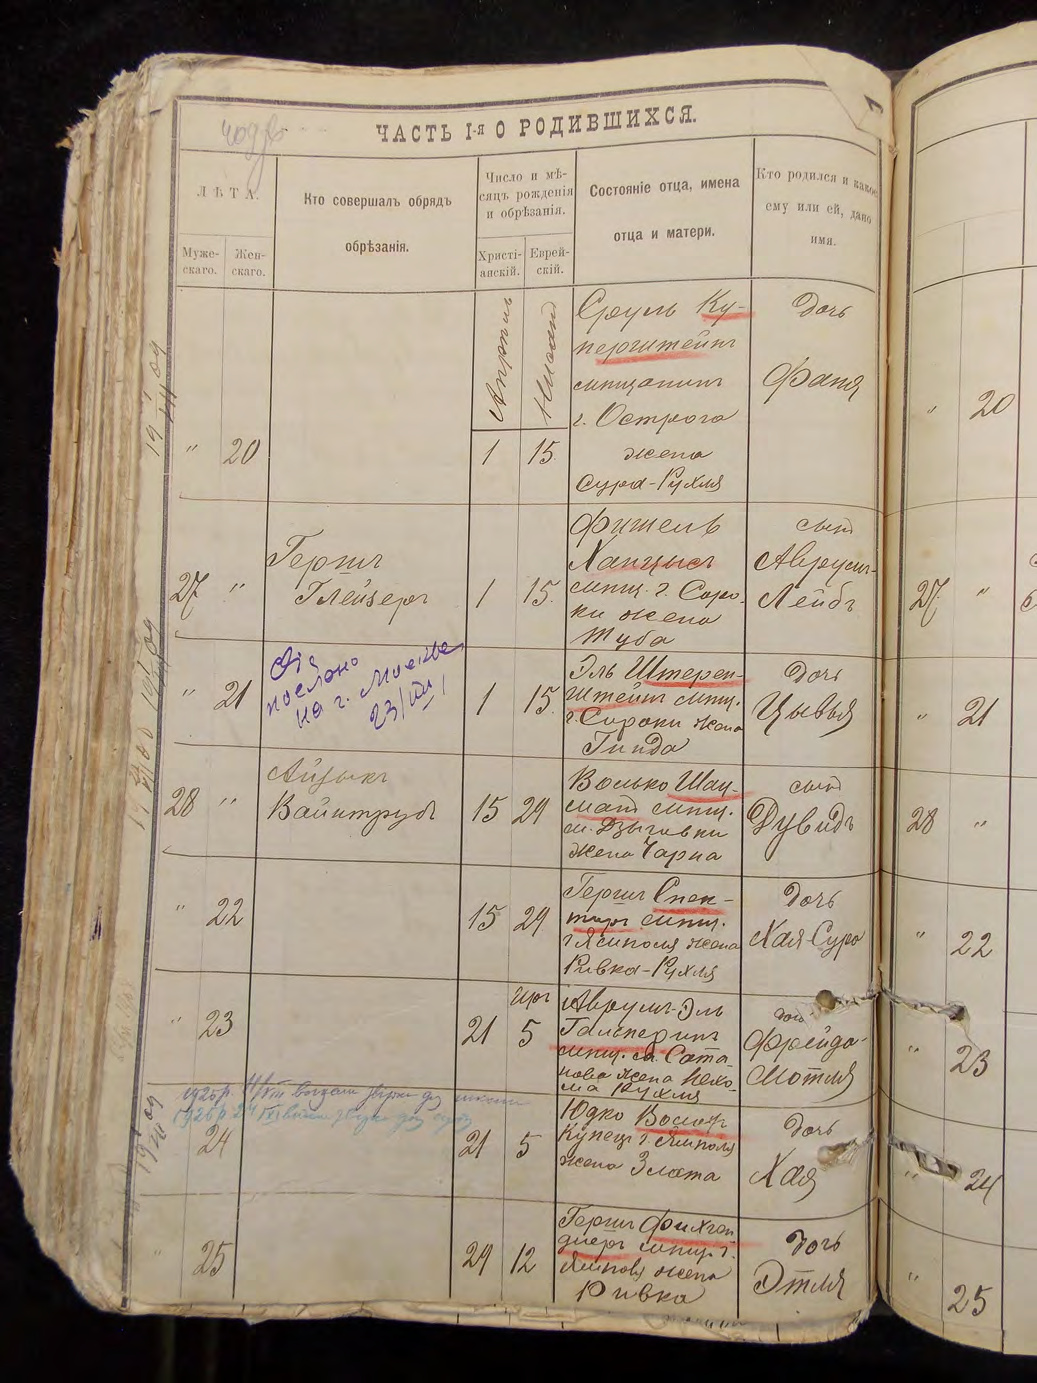 ЧАСТЬ I-я О РОДИВШИХСЯ.
Л Ѣ Т А.
Муже-
скаго.
Жен-
скаго.
Кто совершалъ обрядъ
обрѣзанія.
Число и мѣ-
сяцъ рожденія
и обрѣзанія.
Христі-
анскій.
Еврей-
скій.
Состояніе отца, имена
отца и матери.
Кто родился и какое
ему или ей, дано
имя.
" 20
Апрѣль
1
Нисанъ
15
Сруль Ку-
перштейнъ
мѣщанинъ
г. Острога
жена
Сура-Рухля
дочь
Фаня
27 "
Гершъ
Глейзеръ
1 15
Фишель
Ханцысъ
мѣщ. г. Соро-
ки жена
Туба
сынъ
Аврумъ-
Лейбъ
" 21
послано
на г. Москва
23/VIII
1 15
Эль Штерен-
штейнъ мѣщ.
г. Сороки жена
Гинда
дочь
Цывья
28 "
Айзыкъ
Вайнтрубъ
15 29
Волько Шац-
манъ мѣщ.
м. Дзыговки
жена Чарна
сынъ
Дувидъ
" 22
15 29
Гершъ Спек-
торъ мѣщ.
г. Ямполя жена
Ривка-Рухля
дочь
Хая-Сура
" 23
21
Іяръ
5
Аврумъ-Эль
Гальперинъ
мѣщ. м. Сата
нова жена Нехо-
ма Рухля
дочь
Фрейда-
Мотля
24
21 5
Юдко
купецъ г. Ямполя
жена Злота
дочь
Хая
" 25
29 12
Гершъ
мѣщ. г.
Ямполя жена
Ривка
дочь
Этля
" 20
27 "
" 21
28 "
" 22
" 23
" 24
" 25